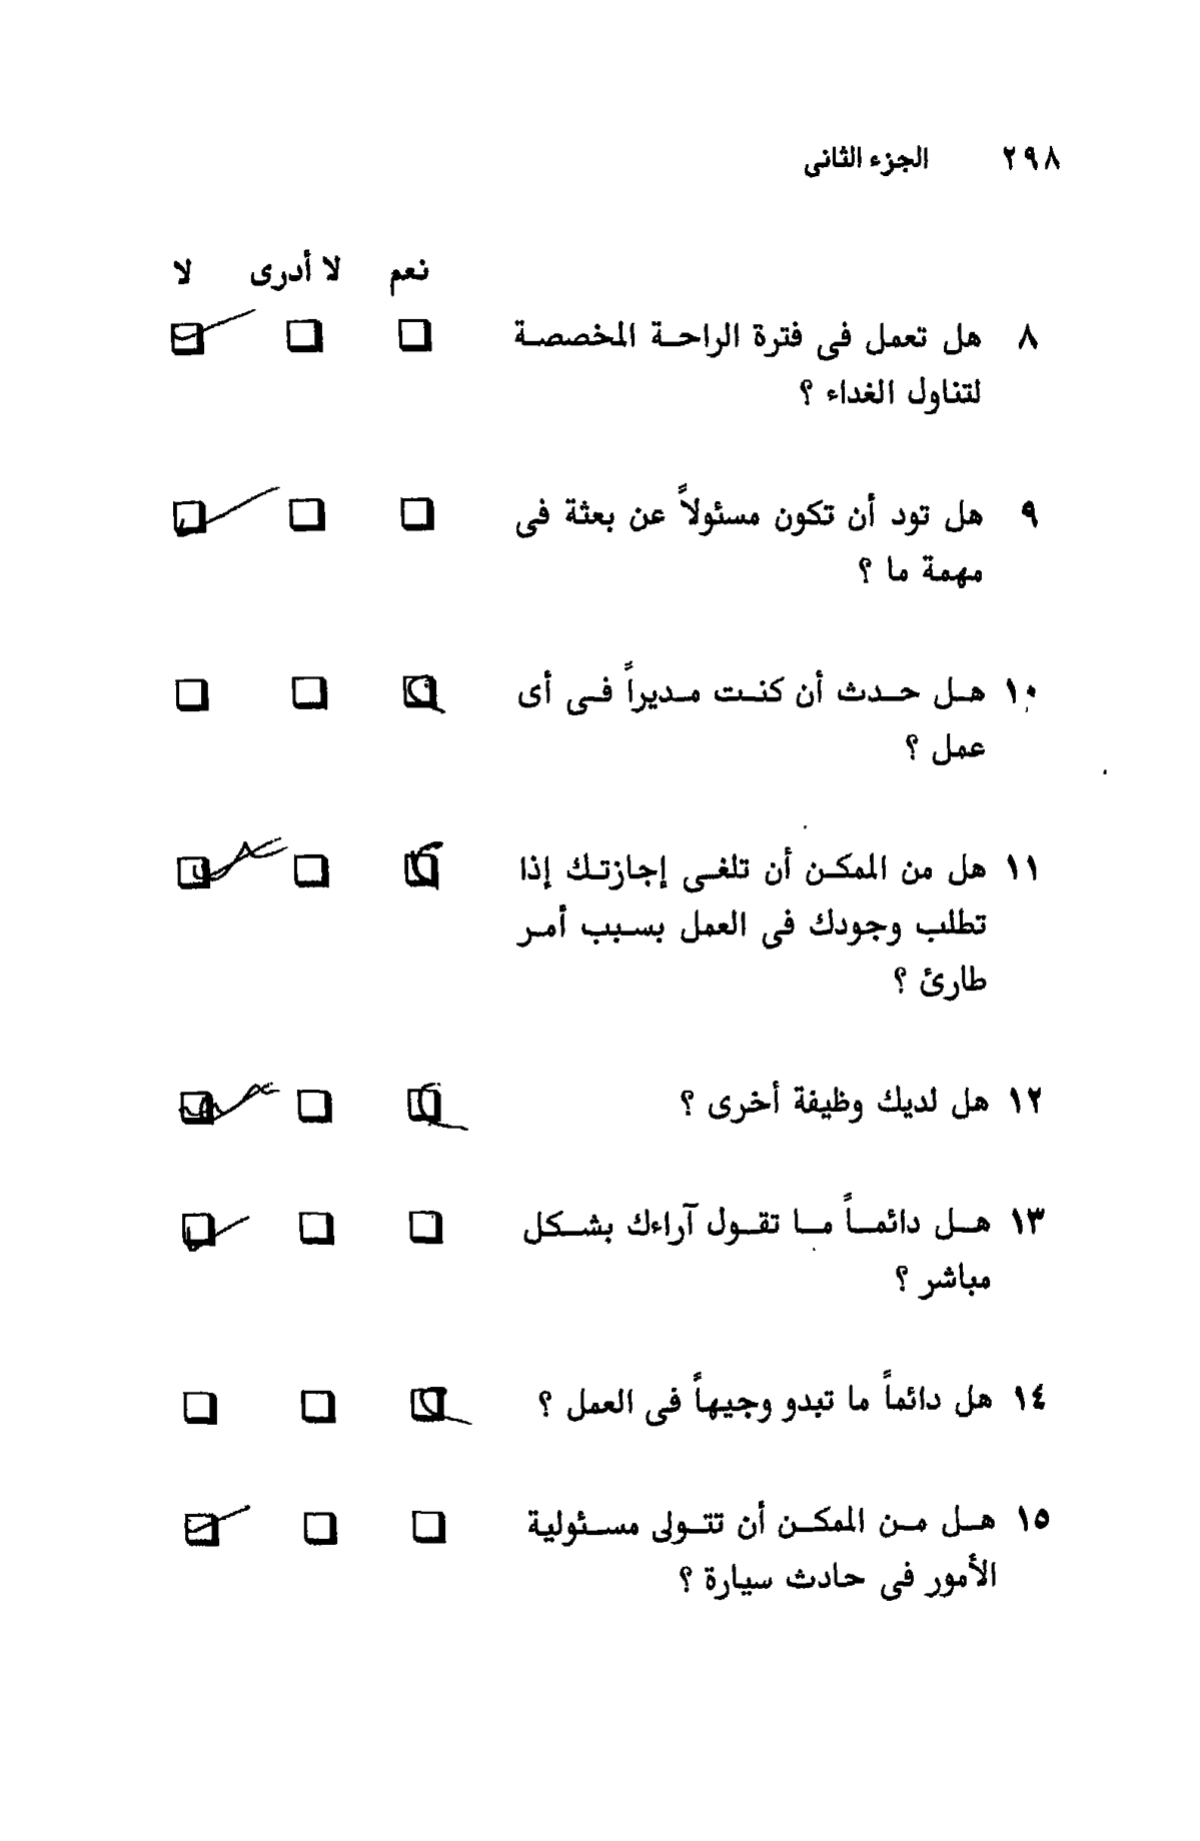 ٢٩٨ الجزء الثانى
نعم لا أدرى لا
٨ هل تعمل فى فترة الراحة المخصصة
لتناول الغداء ؟
٩ هل تود أن تكون مسئولاً عن بعثة فى
مهمة ما ؟
١٠ هل حدث أن كنت مديراً فى أى
عمل ؟
١١ هل من الممكن أن تلغى إجازتك إذا
تطلب وجودك فى العمل بسبب أمر
طارئ ؟
١٢ هل لديك وظيفة أخرى ؟
١٣ هل دائماً ما تقول آراءك بشكل
مباشر ؟
١٤ هل دائماً ما تبدو وجيهاً فى العمل ؟
١٥ هل من الممكن أن تتولى مسئولية
الأمور فى حادث سيارة ؟